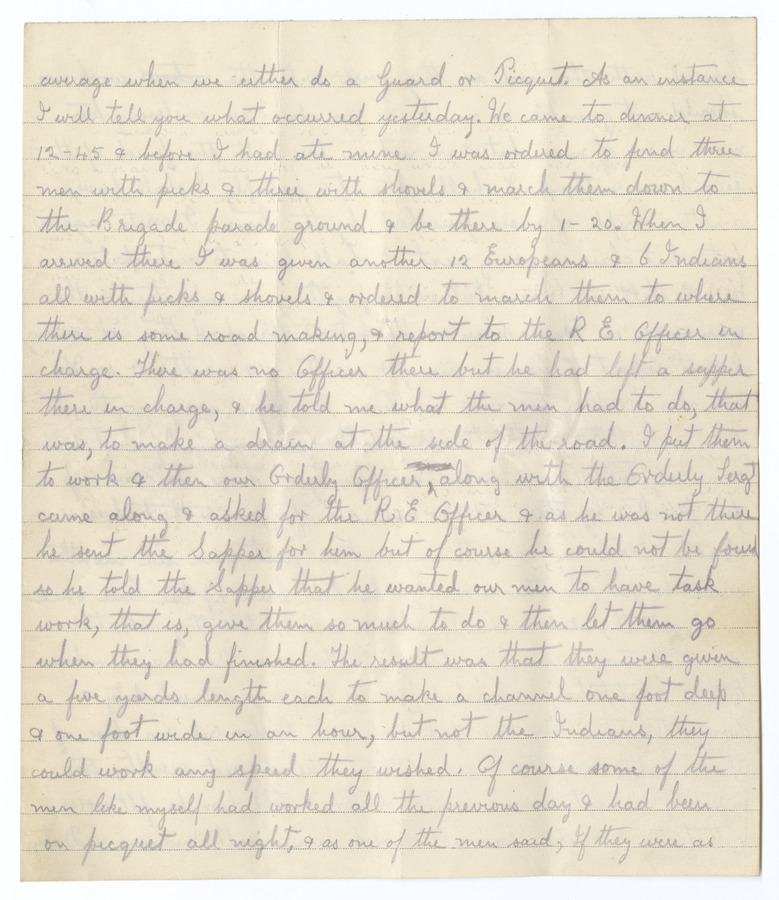 average when we either do a Guard or Picquet. As an instance
I will tell you what occurred yesterday. We came to dinner at
12-45 & before I had ate mine I was ordered to find three
men with picks & three with shovels & march them down to
the Brigade parade ground & be there by 1-20. When I
arrived there I was given another 12 Europeans & 6 Indians
all with picks & shovels & ordered to march them to where
there is some road making, & report to the R E. Officer in
charge. There was no Officer there but he had left a sapper
there in charge, & he told me what the men had to do, that
was, to make a drain at the side of the road. I put them
to work & then our Orderly Officer, along with the Orderly Sergt
came along & asked for the R E Officer & as he was not there
he sent the Sapper for him but of course he could not be found
so he told the Sapper that he wanted our men to have task
work, that is, give them so much to do & then let them go
when they had finished. The result was that they were given
a five yards length each to make a channel one foot deep
& one foot wide in an hour, but not the Indians, they
could work any speed they wished. Of course some of the
men like myself had worked all the previous day & had been
on picquet all night, & as one of the men said, If they were as